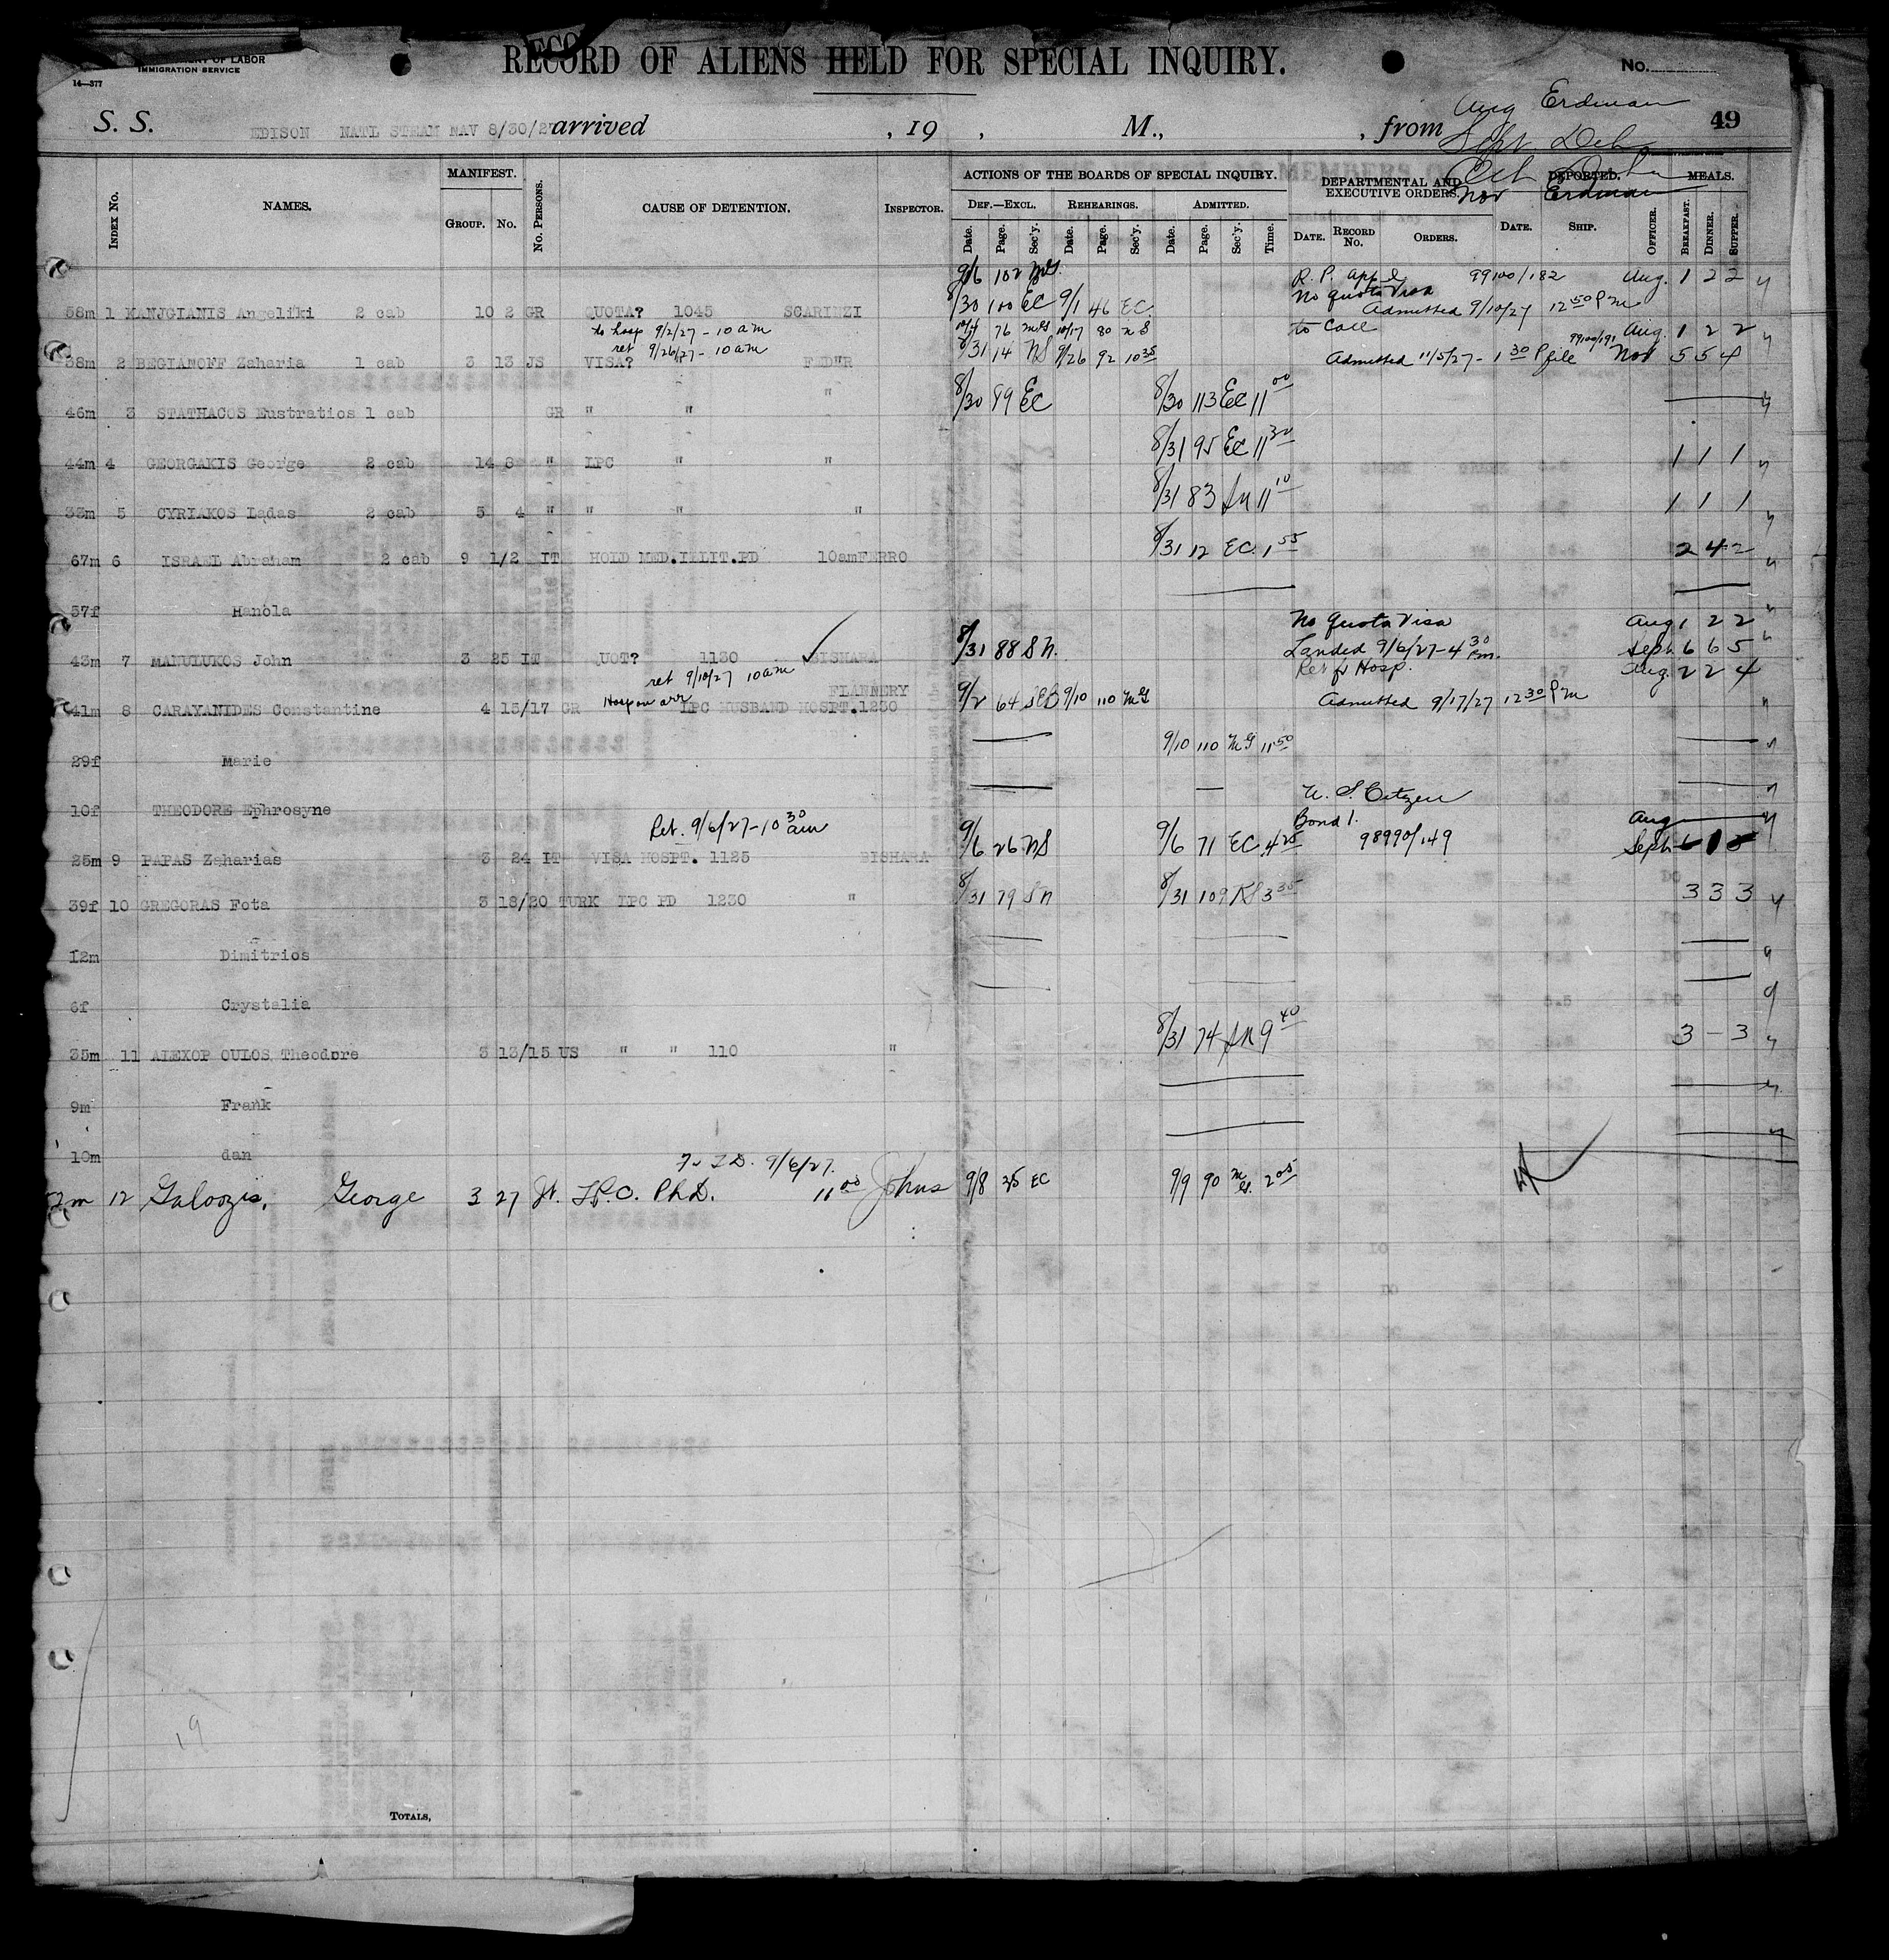 RECORD OF ALIENS HELD FOR SPECIAL INQUIRY.
OF LABOR
IMMIGRATION SERVICE
14—377
No.
Aug Erdman
S. S. EDISON NATL STEAM NAV 8/30/27 arrived , 19 , M., , from 49
Sept
Oct
Nov Erdman
INDEX NO. NAMES. MANIFEST. GROUP. NO. NO. PERSONS. CAUSE OF DETENTION. INSPECTOR.
ACTIONS OF THE BOARDS OF SPECIAL INQUIRY. DEPARTMENTAL AND EXECUTIVE ORDERS. DEPORTED. MEALS.
DEF.—EXCL. REHEARINGS. ADMITTED.
Date. Page. Sec'y. Date. Page. Sec'y. Date. Page. Sec'y. Time. DATE. RECORD NO. ORDERS. DATE. SHIP. OFFICER. BREAKFAST. DINNER. SUPPER.
9/6 102 R. P. App 99100/182 Aug. 1 2 2
No Quota Visa
58m 1 KANJGIANIS Angeliki 2 cab 10 2 GR QUOTA? 1045 SCARINZI 8/30 100 EC 9/1 46 EC Admitted 9/10/27 12 50 Pm
to hosp 9/2/27 - 10 am 76 10/17 80 NS to Call 99100/191 Aug. 1 2 2
ret 9/26/27 - 10 am
38m 2 BEGIANOFF Zaharia 1 cab 3 13 JS VISA? FED"R 8/31 14 NS 9/26 92 10 35 Admitted 11/5/27 - 1 30 P file Nov 5 5 4
46m 3 STATHACOS Eustratios 1 cab GR " " " 8/30 89 EC 8/30 113 EC 11 00
44m 4 GEORGAKIS George 2 cab 14 8 " LPC " " 8/31 95 EC 11 30 1 1 1
33m 5 CYRIAKOS Ladas 2 cab 5 4 " " " " 8/31 83 SN 11 10 1 1 1
67m 6 ISRAEL Abraham 2 cab 9 1/2 IT HOLD MED.ILLIT.PD 10am FERRO 8/31 12 EC. 1 55 2 4 2
57f Hanola
No Quota Visa Aug 1 2 2
43m 7 MANULUKOS John 3 25 IT QUOT? 1130 BISHARA 8/31 88 SN. Landed 9/6/27 - 4 30 Pm. Sept 6 6 5
ret 9/10/27 10 am Ret fr Hosp. Aug. 2 2 4
Hosp on arr FLANNERY
41m 8 CARAYANIDES Constantine 4 15/17 GR LPC HUSBAND HOSPT.1230 9/2 64 SEB 9/10 110 MG Admitted 9/17/27 12 30 Pm
29f Marie 9/10 110 MG 11 50
10f THEODORE Ephrosyne U. S. Citizen
Ret. 9/6/27 - 10 30 am Bond 1. Aug
25m 9 PAPAS Zeharias 3 24 IT VISA HOSPT. 1125 BISHARA 9/6 26 NS 9/6 71 EC 4 25 98990/149 Sept
39f 10 GREGORAS Fota 3 18/20 TURK LPC PD 1230 " 8/31 79 SN 8/31 109 3 35 3 3 3
12m Dimitrios
6f Crystalia
35m 11 ALEXOP OULOS Theodore 3 13/15 US " " 110 " 8/31 74 SN 9 40 3 - 3
9m Frank
10m dan
9/6/27.
12 George 3 27 Ph.D. 11 00 Johns 9/8 25 EC 9/9 90 2 05
19
TOTALS,